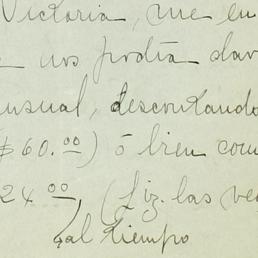 Victoria, me en
nos podía dar
usual, descontando
$60.00) ó bien com
24.00, (Liz. las ve
al tiempo